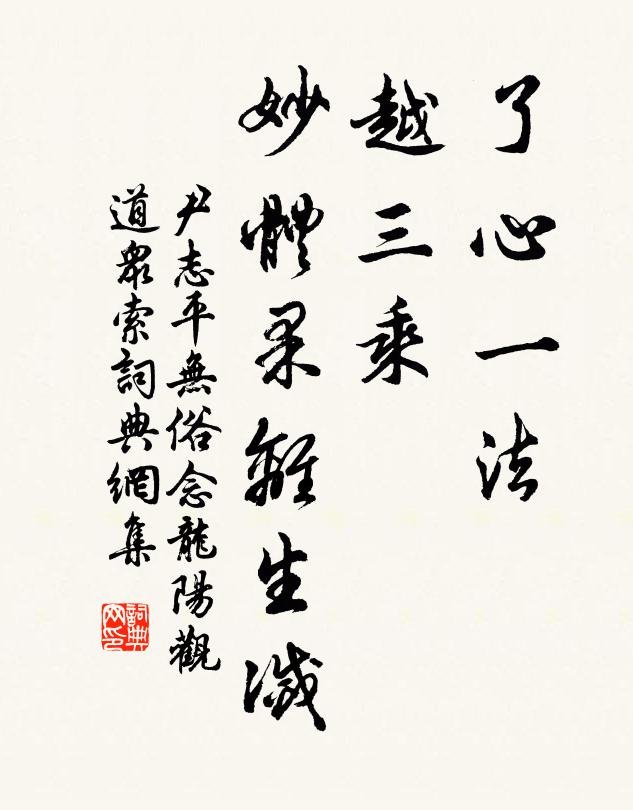 了心一法
越三乘
妙體果離生滅
尹志平無俗念龍陽觀
道眾索詞典網集
詞典網印